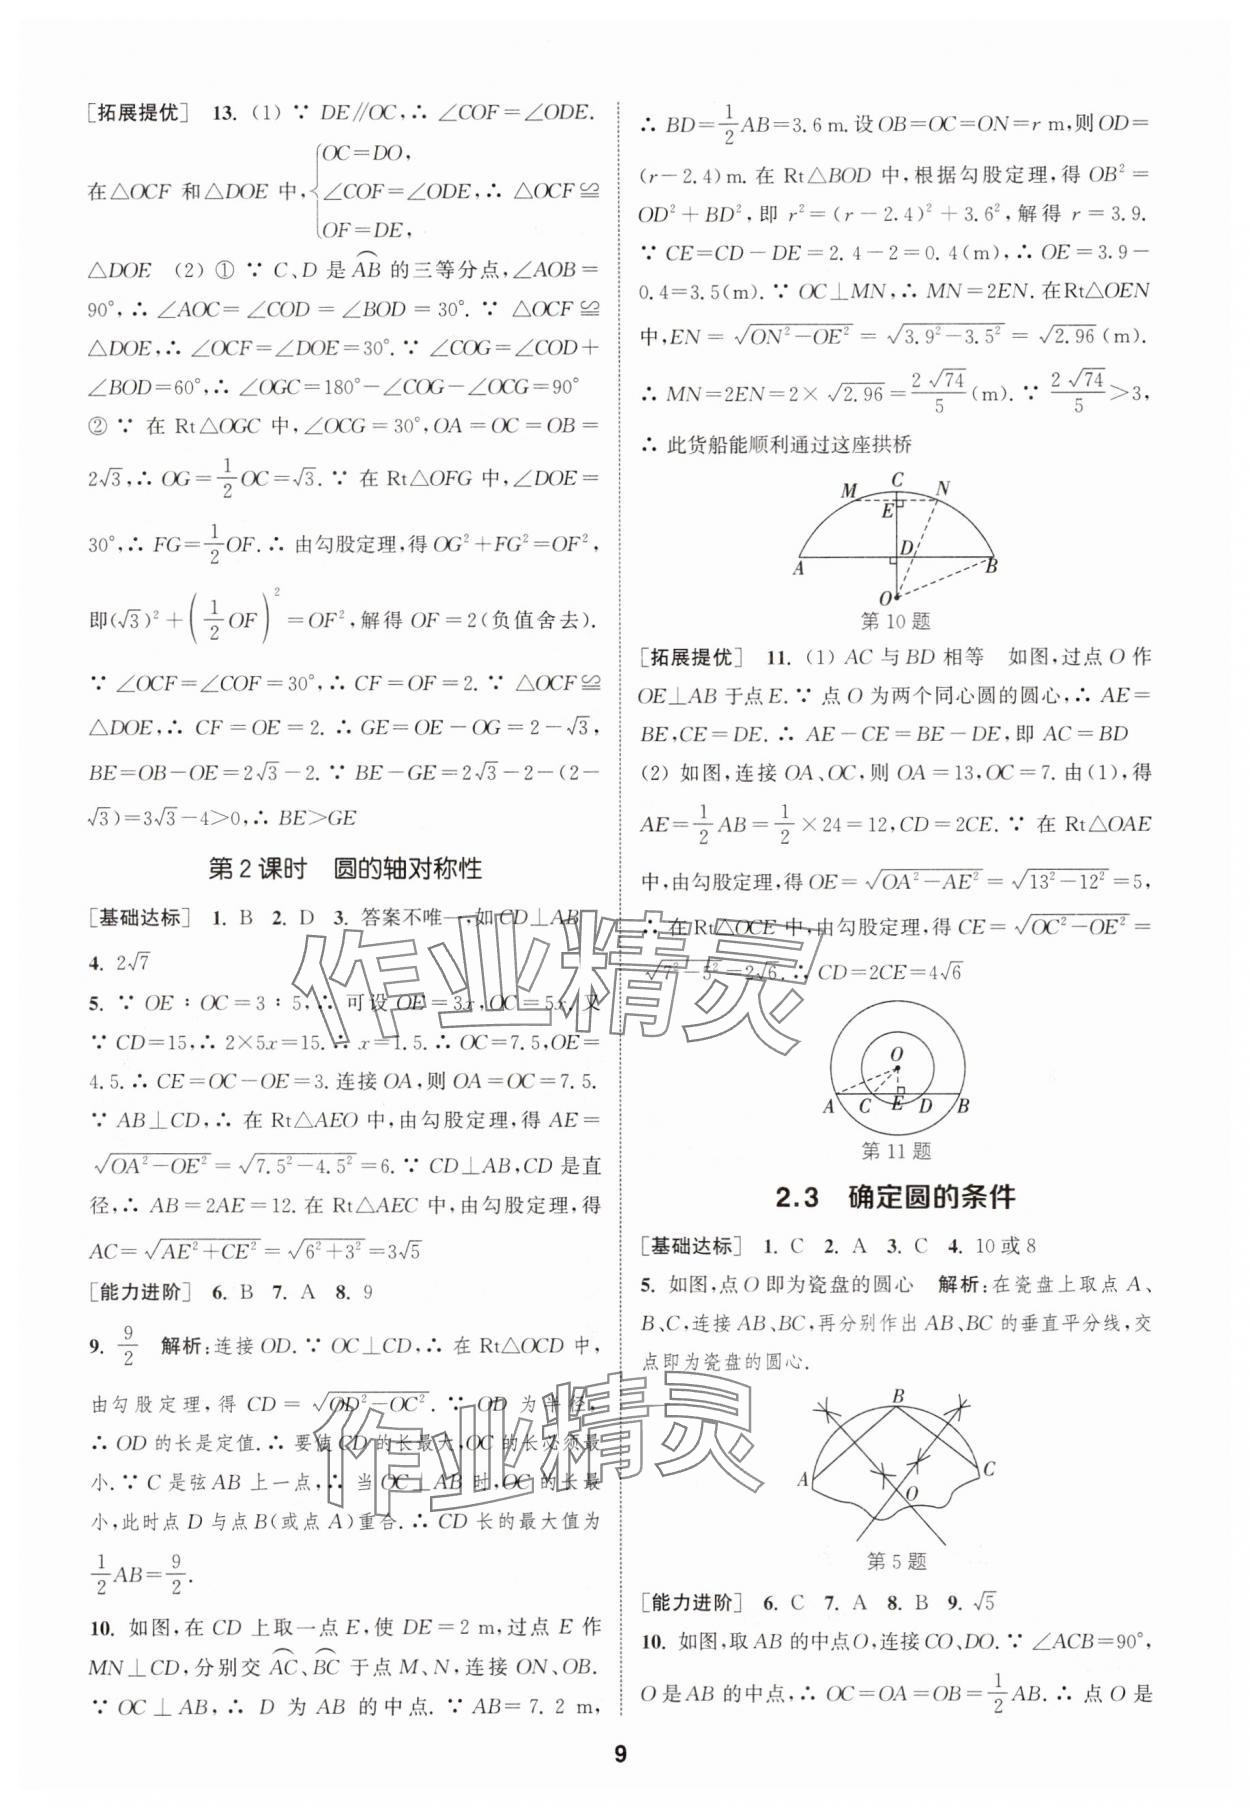 [拓展提优] 13. (1) ∵ DE∥OC,∴ ∠COF=∠ODE.
在△OCF 和△DOE 中,{OC=DO,
∠COF=∠ODE,∴ △OCF≌
OF=DE,
△DOE (2) ① ∵ C、D 是 ⌒AB 的三等分点,∠AOB=
90°,∴ ∠AOC=∠COD=∠BOD=30°. ∵ △OCF≌
△DOE,∴ ∠OCF=∠DOE=30°. ∵ ∠COG=∠COD+
∠BOD=60°,∴ ∠OGC=180°-∠COG-∠OCG=90°
② ∵ 在 Rt△OGC 中,∠OCG=30°,OA=OC=OB=
2√3,∴ OG=1/2 OC=√3. ∵ 在 Rt△OFG 中,∠DOE=
30°,∴ FG=1/2 OF. ∴ 由勾股定理,得 OG²+FG²=OF²,
即(√3)²+(1/2 OF)²=OF²,解得 OF=2(负值舍去).
∵ ∠OCF=∠COF=30°,∴ CF=OF=2. ∵ △OCF≌
△DOE,∴ CF=OE=2. ∴ GE=OE-OG=2-√3,
BE=OB-OE=2√3-2. ∵ BE-GE=2√3-2-(2-
√3)=3√3-4>0,∴ BE>GE
第2课时 圆的轴对称性
[基础达标] 1. B 2. D 3. 答案不唯一,如 CD⊥AB
4. 2√7
5. ∵ OE∶OC=3∶5,∴ 可设 OE=3x,OC=5x. 又
∵ CD=15,∴ 2×5x=15. ∴ x=1.5. ∴ OC=7.5,OE=
4.5. ∴ CE=OC-OE=3. 连接 OA,则 OA=OC=7.5.
∵ AB⊥CD,∴ 在 Rt△AEO 中,由勾股定理,得 AE=
√(OA²-OE²)=√(7.5²-4.5²)=6. ∵ CD⊥AB,CD 是直
径,∴ AB=2AE=12. 在 Rt△AEC 中,由勾股定理,得
AC=√(AE²+CE²)=√(6²+3²)=3√5
[能力进阶] 6. B 7. A 8. 9
9. 9/2 解析:连接 OD. ∵ OC⊥CD,∴ 在 Rt△OCD 中,
由勾股定理,得 CD=√(OD²-OC²). ∵ OD 为半径,
∴ OD 的长是定值. ∴ 要使 CD 的长最大,OC 的长必须最
小. ∵ C 是弦 AB 上一点,∴ 当 OC⊥AB 时,OC 的长最
小,此时点 D 与点 B(或点 A)重合. ∴ CD 长的最大值为
1/2 AB=9/2.
10. 如图,在 CD 上取一点 E,使 DE=2 m,过点 E 作
MN⊥CD,分别交 ⌒AC、⌒BC 于点 M、N,连接 ON、OB.
∵ OC⊥AB,∴ D 为 AB 的中点. ∵ AB=7.2 m,
∴ BD=1/2 AB=3.6 m. 设 OB=OC=ON=r m,则 OD=
(r-2.4)m. 在 Rt△BOD 中,根据勾股定理,得 OB²=
OD²+BD²,即 r²=(r-2.4)²+3.6²,解得 r=3.9.
∵ CE=CD-DE=2.4-2=0.4(m),∴ OE=3.9-
0.4=3.5(m). ∵ OC⊥MN,∴ MN=2EN. 在Rt△OEN
中,EN=√(ON²-OE²)=√(3.9²-3.5²)=√2.96(m).
∴ MN=2EN=2×√2.96=2√74/5(m). ∵ 2√74/5>3,
∴ 此货船能顺利通过这座拱桥
M C N
E
D
A B
O
第10题
[拓展提优] 11. (1) AC 与 BD 相等 如图,过点 O 作
OE⊥AB 于点 E. ∵ 点 O 为两个同心圆的圆心,∴ AE=
BE,CE=DE. ∴ AE-CE=BE-DE,即 AC=BD
(2) 如图,连接 OA、OC,则 OA=13,OC=7. 由(1),得
AE=1/2 AB=1/2×24=12,CD=2CE. ∵ 在 Rt△OAE
中,由勾股定理,得 OE=√(OA²-AE²)=√(13²-12²)=5,
∴ 在 Rt△OCE 中,由勾股定理,得 CE=√(OC²-OE²)=
√(7²-5²)=2√6. ∴ CD=2CE=4√6
O
A C E D B
第11题
2.3 确定圆的条件
[基础达标] 1. C 2. A 3. C 4. 10或8
5. 如图,点 O 即为瓷盘的圆心 解析:在瓷盘上取点 A、
B、C,连接 AB、BC,再分别作出 AB、BC 的垂直平分线,交
点即为瓷盘的圆心.
B
A C
O
第5题
[能力进阶] 6. C 7. A 8. B 9. √5
10. 如图,取 AB 的中点O,连接CO、DO. ∵ ∠ACB=90°,
O 是 AB 的中点,∴ OC=OA=OB=1/2 AB. ∴ 点 O 是
9
作业精灵
作业精灵